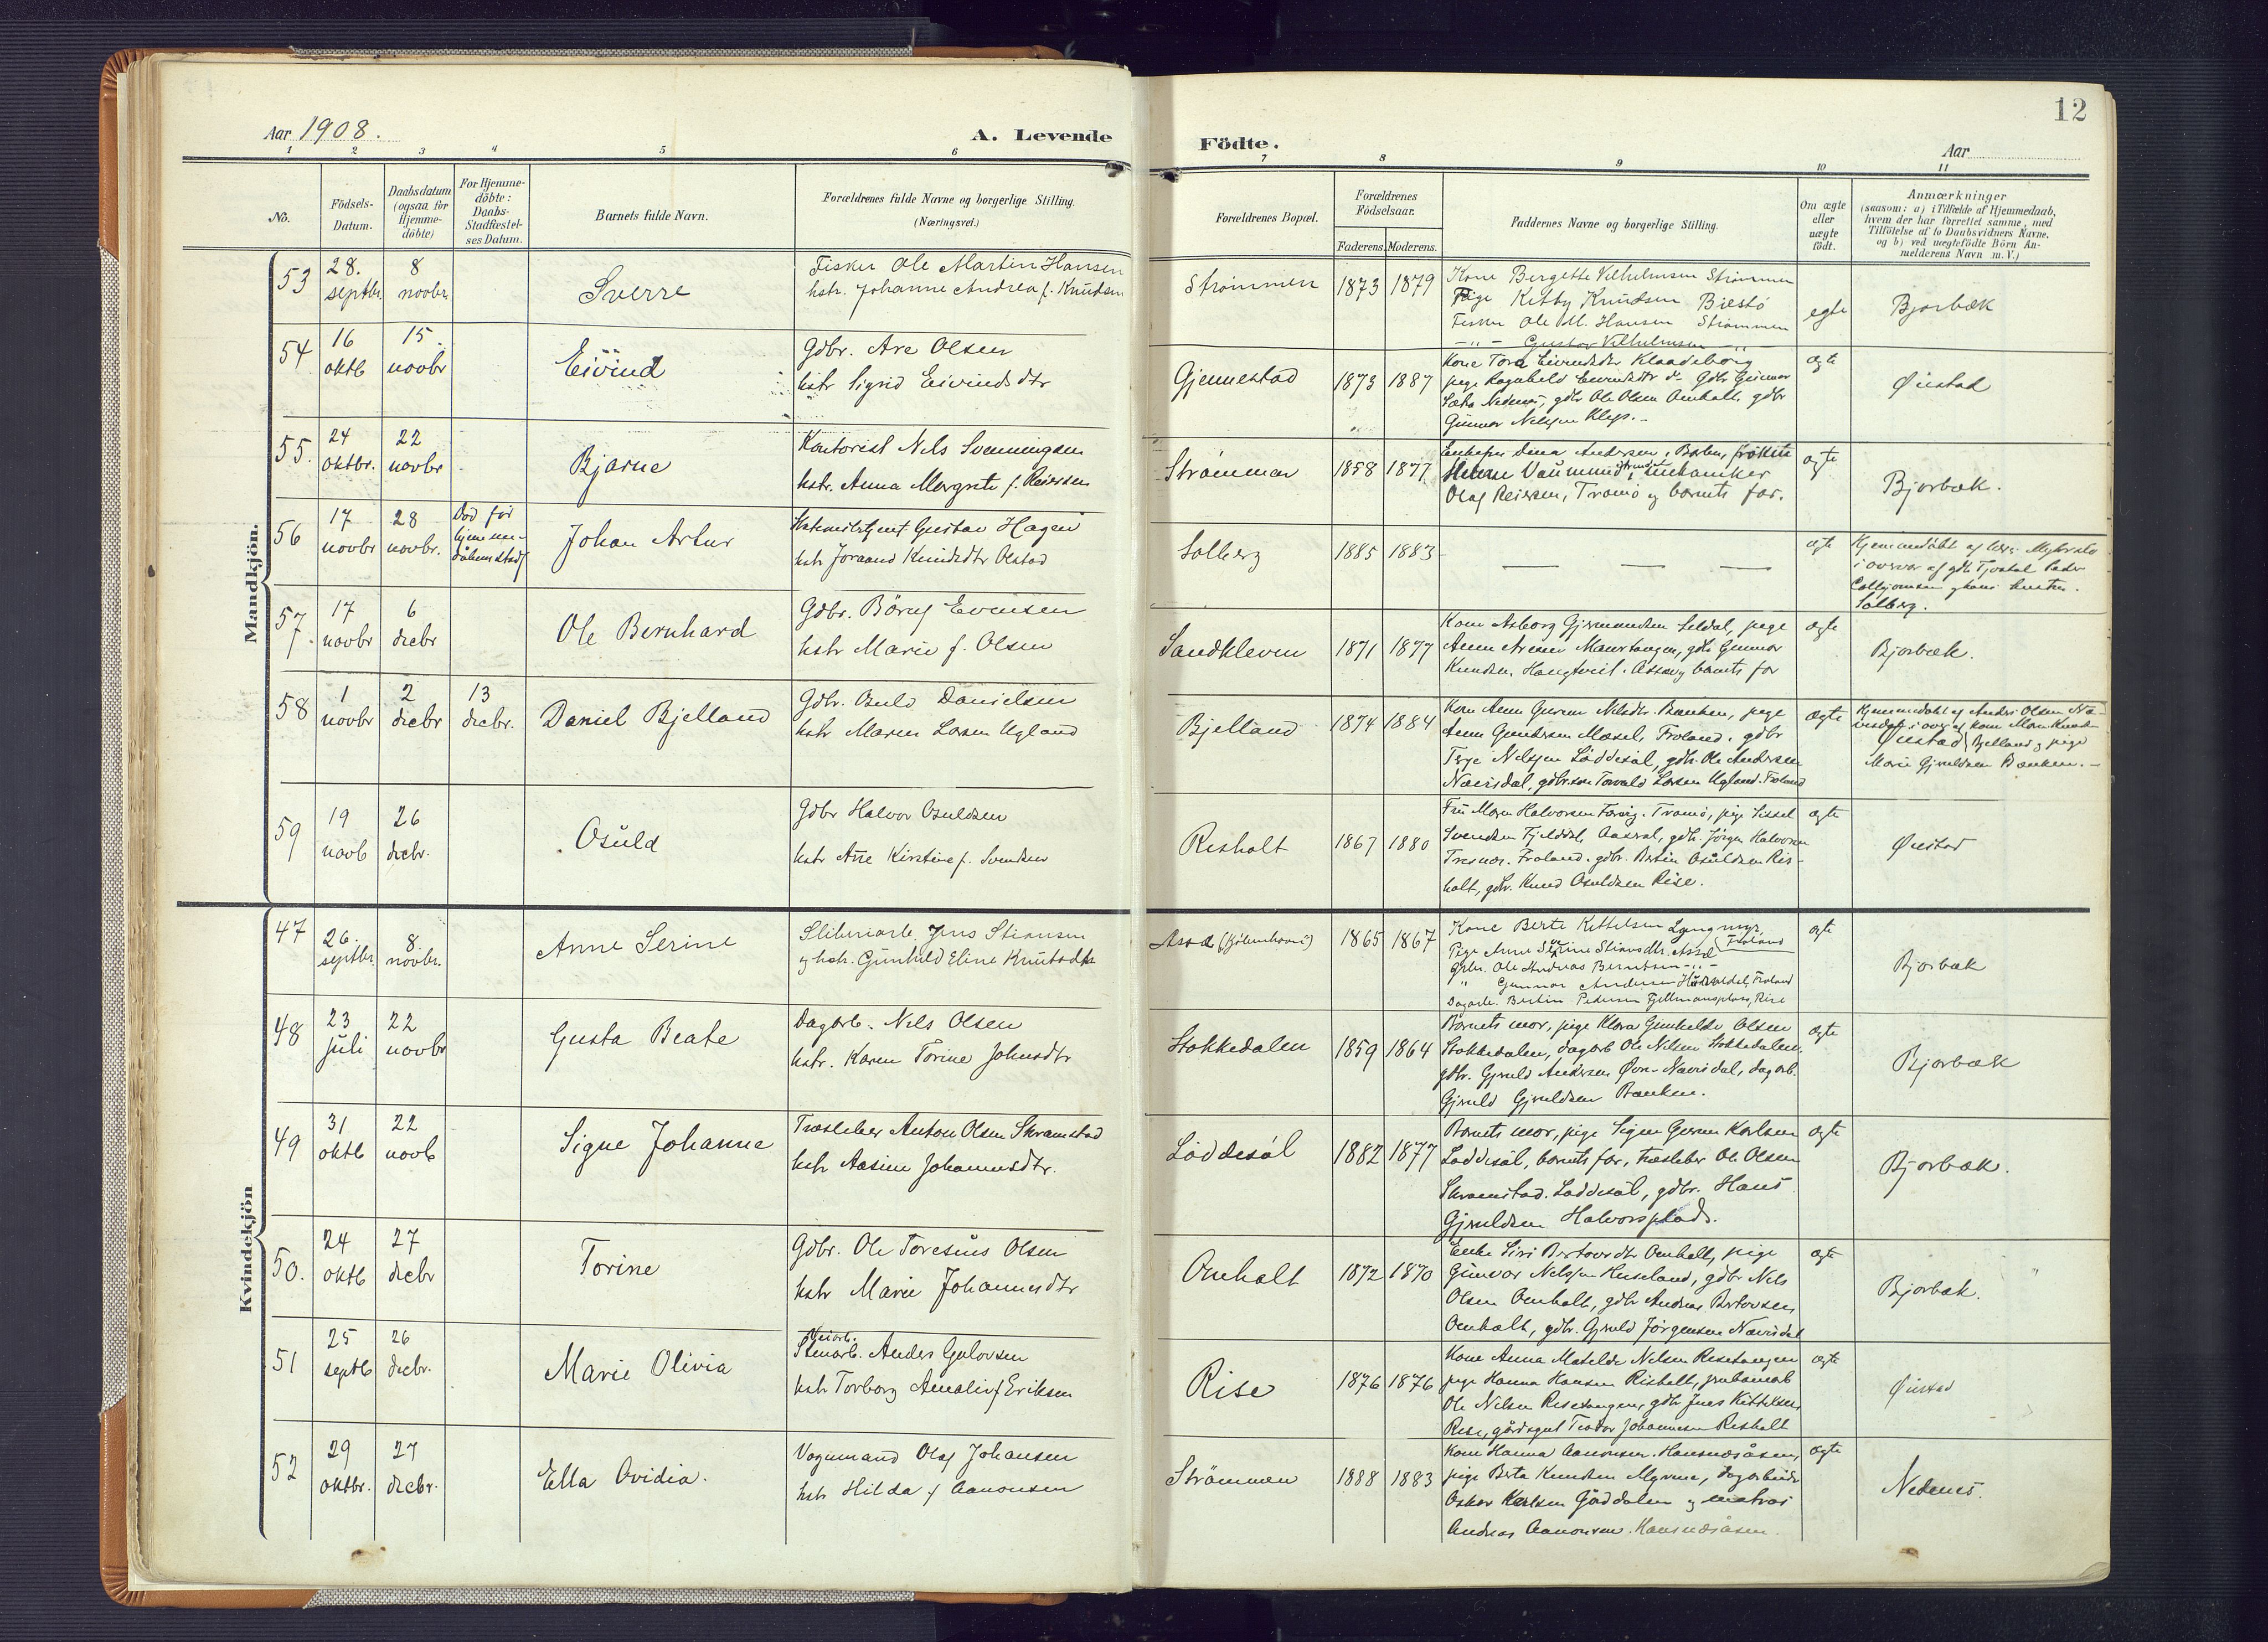 Aar 1908.
A. Levende
Födte.
12
Aar
1 2 3 4 5 6 7 8 9 10 11
No.
Födsels-
Datum.
Daabsdatum
(ogsaa for
Hjemme-
döbte)
For Hjemme-
döbte:
Daabs-
Stadfæstel-
ses Datum.
Barnets fulde Navn.
Forældrenes fulde Navne og borgerlige Stilling.
(Næringsvei.)
Forældrenes Bopæl.
Forældrenes
Födselsaar.
Faderens. Moderens.
Faddernes Navne og borgerlige Stilling.
Om ægte
eller
uægte
født.
Anmærkninger
(saasom: a) i Tilfælde af Hjemmedaab,
hvem der har forrettet samme, med
Tilföielse af to Daabsvidners Navne,
og b) ved uægtefödte Börn An-
melderens Navn m. V.)
Mandkjön.
53
28.
septbr.
8
novbr.
Sverre
Fisker Ole Martin Hansen
hstr. Johanne Andrea f. Knudsen
Strømmen
1873
1879
Kone Bergette Vilhelmsen Strømmen
Pige Kitty Knudsen Biestö
Fisker Ole M. Hansen Strømmen
-"- Gustav Vilhelmsen -"-
egte
Bjorbæk
54
16
oktb
15.
novbr
Eivind
Gdbr. Are Olsen
hstr Sigrid Eivindsdtr
Gjennestad
1873
1887
Kone Tora Eivindsdtr. Klaadeborg
pige Ragnhild Eivindsdtr do Gdbr Gunnar
gdbr Ole Olsen Omholt, gdbr
Gunnar Nelsen Klep.-
ægte
Øiestad
55.
24
oktbr.
22
novbr
Bjarne
Kontorist Nels Svenningsen
hstr. Anna Margrete f. Reiersen
Strømmen
1858
1877
Dina Andersen, frøken
mekaniker
Olaf Reiersen, Tromø og barnets far.
ægte
Bjorbæk.
56
17
novbr
28
novbr.
Død før
hjemme-
dåben stadf
Johan Artur
Gustav Hagen
hstr Joraand Knudsdtr Olstad
Solberg
1885
1883
— — —
ægte
Hjemmedøbt af
i overvær af gdbr Tjostol Peder
og hans hustru.
Solberg.
57.
17
novbr
6
decbr
Ole Bernhard
Gdbr. Børuf Evensen
hstr Marie f. Olsen
Sandkleven
1871
1877
Kone Asborg Gjermundsen Seldal, pige
Anne Arnesen gdbr Gunnar
Knudsen og barnets far
ægte
Bjorbæk.
58
1
novbr
2
decbr
13
decbr.
Daniel Bjelland
Gdbr. Osuld Danielsen
hstr Maren Larsen Ugland
Bjelland
1874
1884
Kone Anne Gurine Nilsdtr. Bænken, pige
Anne Gundersen Mæsel, Froland, gdbr
Terje Nelsen Löddesöl, gdbr. Ole Andersen
Næversdal, gdbr.søn Torvald Larsen Ugland. Froland
ægte
Hjemmedøbt af Anders Olsen Næ-
versdal i overv af kone Maren Knud-
Øiestad Bjelland og pige
Marie Gjeruldsen Bænken.-
59
19
novb
26
decbr.
Osuld
Gdbr Halvor Osuldsen
hstr Ane Kirstine f. Svendsen
Risholt
1867
1880
Fru Maren Halvorsen Færvig. Tromø, pige Sissel
Svendsen Fjelddal, Aaseral, gdbr. Jørgen Halvorsen
Tresnes. Froland. gdbr. Bertin Osuldsen Ris-
holt, gdbr. Knud Osuldsen Rise.
ægte
Øiestad
Kvindekjön
47
26.
septbr.
8.
novbr.
Anne Serine
Sliberiarb. Jens Stiansen
og hstr. Gunhild Eline Knutsdtr
Assæl (Kjøbenhavn)
1865
1867
Kone Berte Kittelsen Lyngmyr,
Pige Anne Serine Stiansdtr. Assæl Froland
Grbr. Ole Andreas Berntsen -"-
" Gunnar Andersen Froland
Dagarb. Bertin Pedersen Fjellmansplass, Rise
ægte
Bjorbæk
48
23
juli
22
novbr
Gusta Beate
Dagarb. Nels Olsen
hstr. Karen Torine Johnsdtr
Stokkedalen
1859
1864
Barnets mor, pige Klara Gunhilde Olsen
Stokkedalen, dagarb Ole Nilsen Stokkedalen,
gdbr. Gjeruld Andersen Øvre-Næversdal, dagarb.
Gjeruld Gjeruldsen Bænken.
ægte
Bjorbæk
49
31
oktb
22
novb
Signe Johanne
Træsliber Anton Olsen Skramstad
hstr Aasine Johannesdtr.
Löddesöl
1882
1877
Barnets mor, pige Signe Gurine Karlsen
Løddesøl, barnets far, træsliber Ole Olsen
Skramstad. Løddesøl, gdbr. Hans
Gjeruldsen Halvorsplads.
ægte
Bjorbæk.
50.
24
oktb
27
decbr
Torine
Gdbr. Ole Toresius Olsen
hstr Marie Johannesdtr
Omholt
1872
1870
Enke Siri Bertovsdtr Omholt, pige
Gunvor Nelsen Huseland, gdbr Nels
Olsen Omholt, gdbr Andreas Bertovsen,
Omholt, gdbr. Gjeruld Jörgensen Næversdal
ægte
Bjorbæk.
51
25
septb
26
decbr.
Marie Olivia
Veiarb.
Stenarb. Anders Gulovsen
hstr Torborg Amalie f Eriksen
Rise
1876
1876
Kone Anna Matilde Nelsen Risetangen
pige Hanna Hansen Risholt, grubearb
Ole Nelsen Risetangen, gdbr Jens Kittelsen
Rise, gårdsgut Teodor Johannesen Risholt
ægte
Øiestad
52
29
oktbr.
27
decbr.
Ella Ovidia.
Vognmand Olaf Johansen
hstr Hilda f Aanonsen
Strömmen
1888
1883
Kone Hanna Aanonsen. Hansnesåsen,
pige Berta Knudsen Myrene, dagarbeider
Oskar Karlsen Gåddalen og matros
Andreas Aanonsen. Hansnesåsen.
ægte
Nedenes.